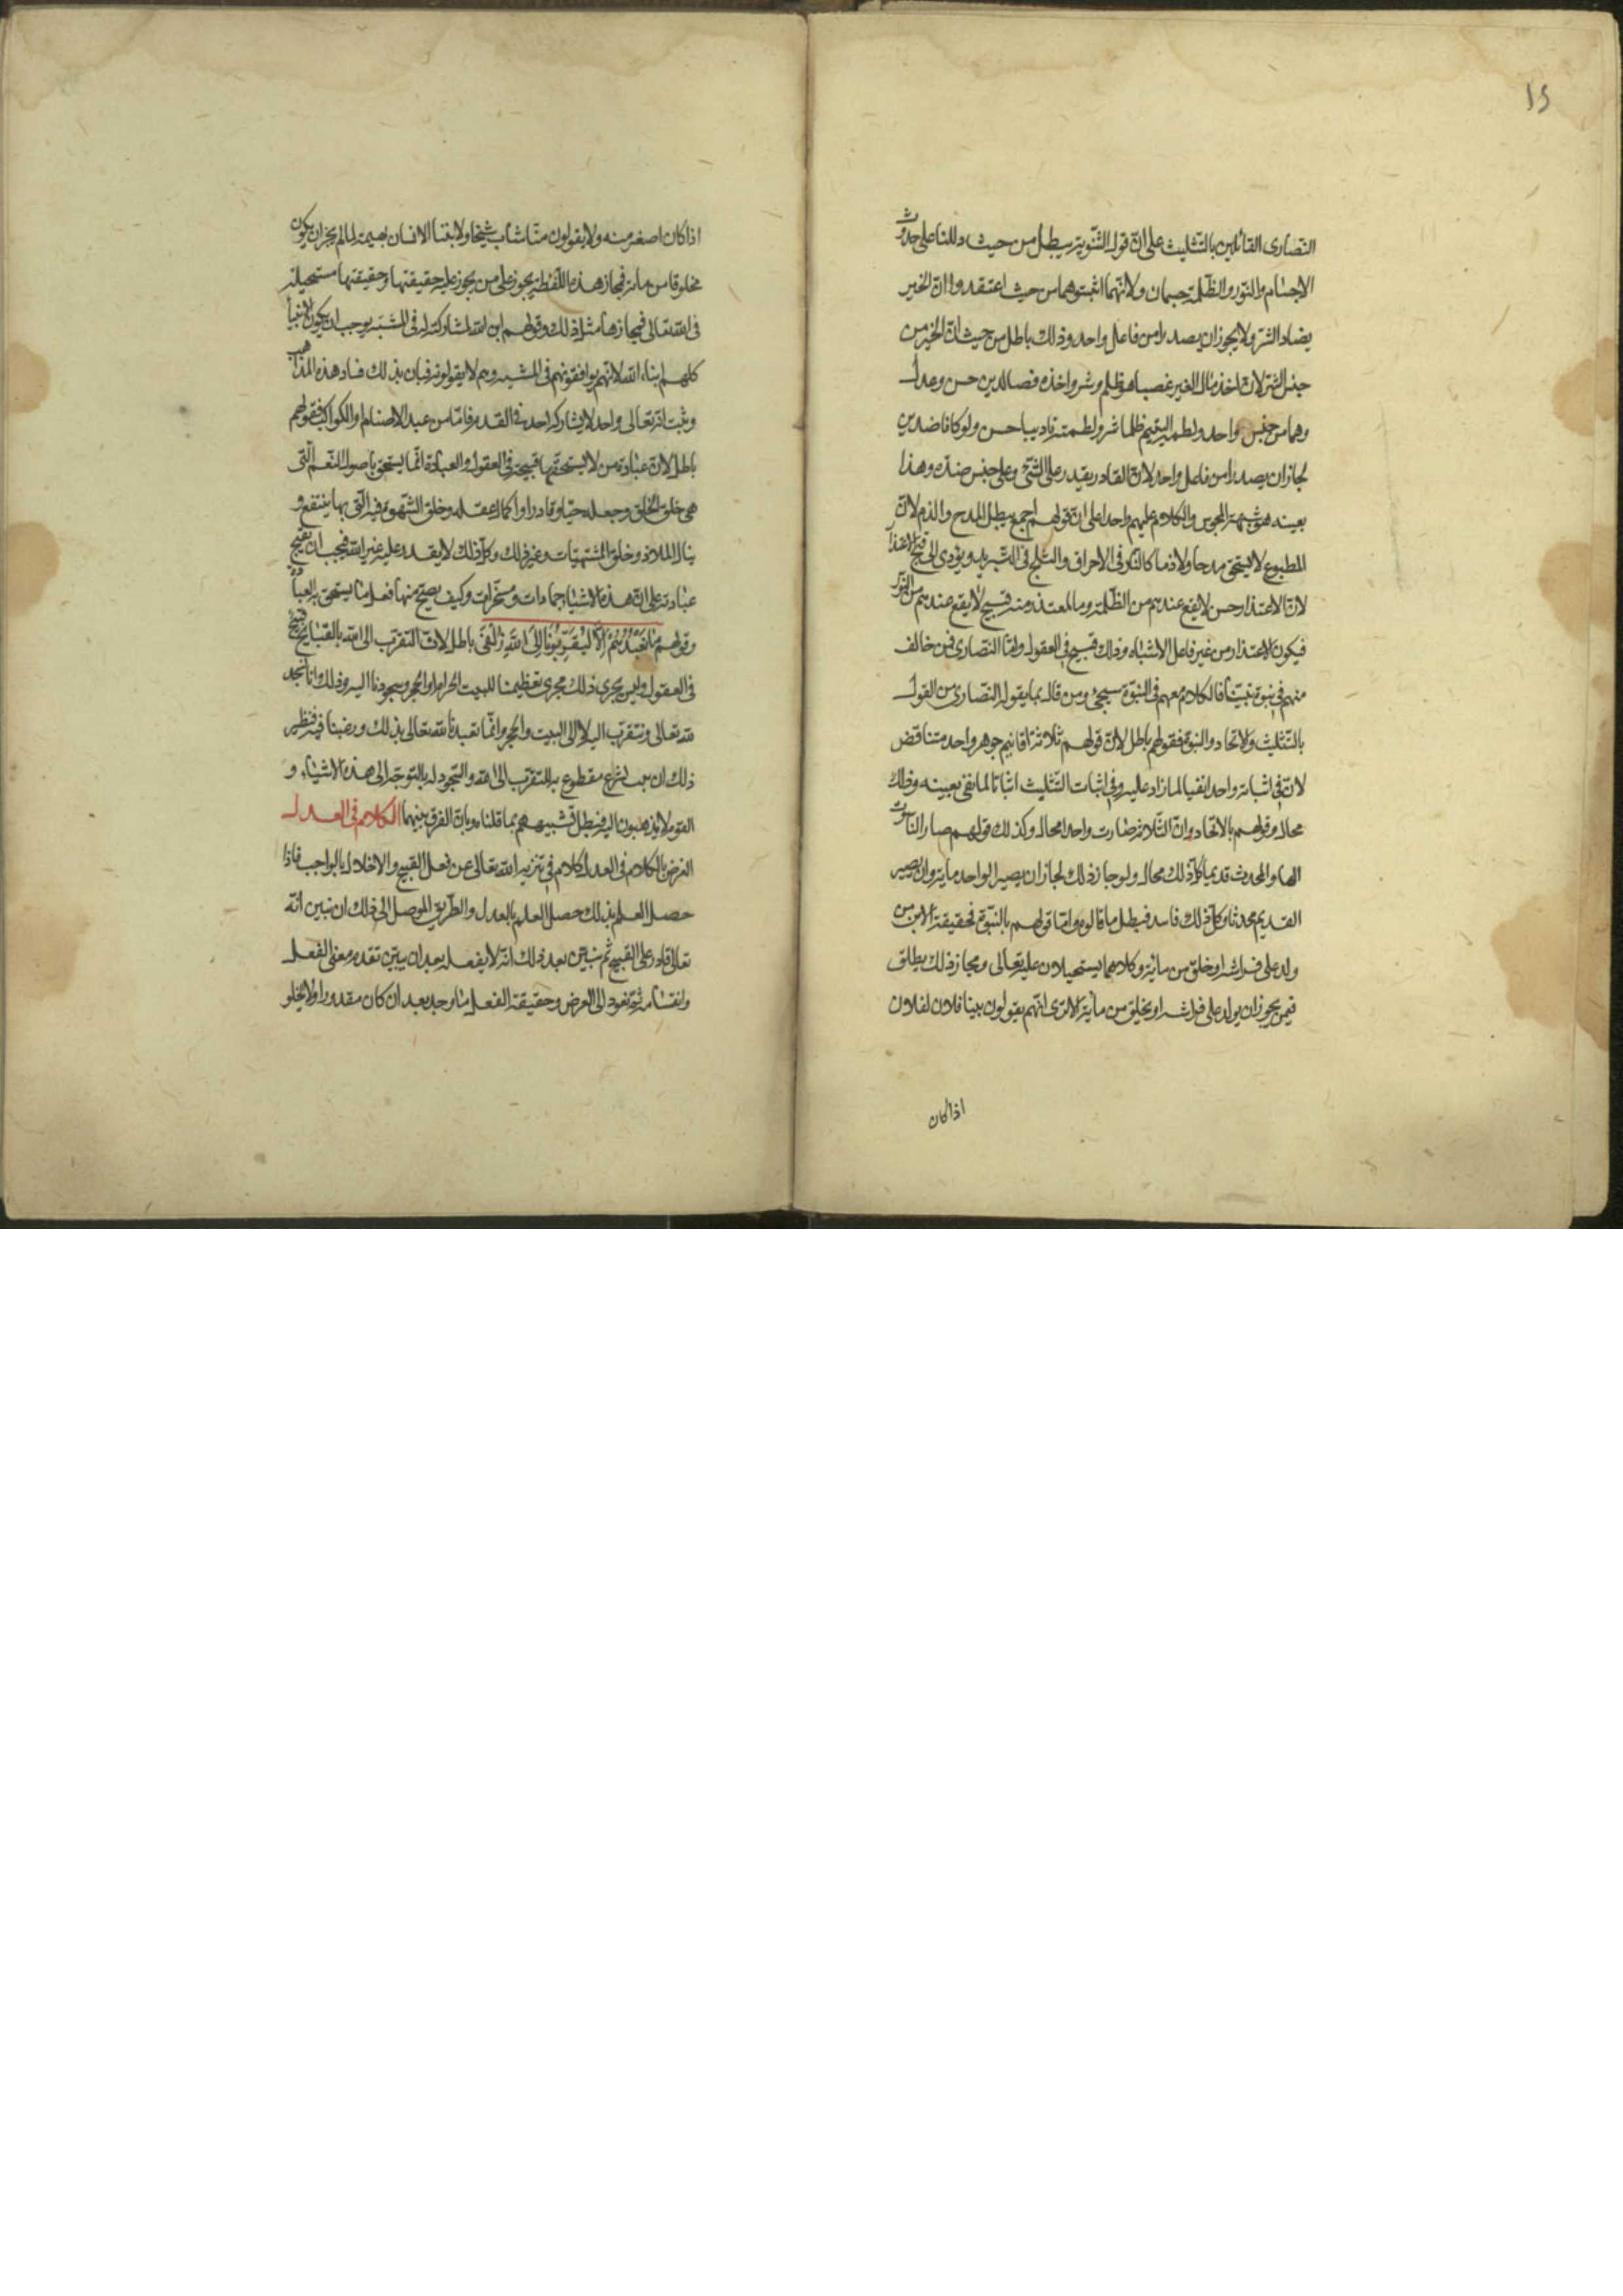 ١٥
النصارى القائلين بالتثليث على ان قول الثنوية يبطل من حيث دللنا على حدوث
الاجسام والنور والظلمة جسمان ولانهما اثبتوهما من حيث اعتقدوا ان الخير
يضاد الشر ولا يجوز ان يصدرا من فاعل واحد وذلك باطل من حيث ان الخير من
جنس الشر لان اخذ مال الغير غصبا هو ظلم وشر واخذه قضا لدين حسن وعدل
وهما من جنس واحد ولطم اليتيم ظلما شر ولطمته تاديبا حسن ولو كانا ضدين
لجاز ان يصدرا من فاعل واحد لان القادر يقدر على الشئ وعلى جنس ضده وهذا
بعينه هو شبهة المجوس والكلام عليهم واحد على ان قولهم اجمع يبطل المدح والذم لان
المطبوع لا يستحق مدحا ولا ذما كالنار فى الاحراق والثلج فى التبريد ويؤدى الى قبح الاعتذار
لان الاعتذار حسن لا يقع عندهم من الظلمة وما المعتذر منه قبيح لا يقع عندهم من النور
فيكون الاعتذار من غير فاعل الاشياء وذلك قبيح فى العقول واما النصارى فمن خالف
منهم فى نبوة نبينا فالكلام معهم فى النبوة سيجئ ومن قال بما يقول النصارى من القول
بالتثليث والاتحاد والنبوة فقولهم باطل لان قولهم ثلاثة اقانيم جوهر واحد متناقض
لان فى اثباته واحدا نفيا لما زاد عليه وفى اثبات التثليث اثباتا لما نفى بعينه وذلك
محال وقولهم بالاتحاد وان الثلاثة صارت واحدا محال وكذلك قولهم صار الناسوت
الها والمحدث قديما كل ذلك محال ولو جاز ذلك لجاز ان يصير الواحد ماية وان يصير
القديم محدثا وكل ذلك فاسد فبطل ما قالوه واما قولهم بالنبوة فحقيقة الابن من
ولد على فراشه او خلق من مائه وكلاهما يستحيلان عليه تعالى ومجاز ذلك يطلق
فيمن يجوز ان يولد على فراشه او يخلق من مائه الا ترى انهم يقولون تبنا فلان لفلان
اذا كان
اذا كان اصغر منه ولا يقولون تبنا شاب شيخا ولا تبنا الانسان بهيمة لما لم يجز ان يكون
مخلوقا من مائه فمجاز هذه اللفظة يجوز على من يجوز عليه حقيقتها وحقيقتها مستحيلة
فى الله تعالى فمجازها مثل ذلك وقولهم ابن الله لمشاركته له فى المشية يوجب ان يكون الانبيا
كلهم ابناء الله لانهم يوافقونهم فى المشية وهم لا يقولونه فبان بذلك فساد هذه المذاهب
وثبت انه تعالى واحد لا يشاركه احد فى القدم فاما من عبد الاصنام والكواكب فقولهم
باطل لان عبادة من لا يستحقها قبيحة فى العقول والعبادة انما يستحق باصول النعم التى
هى خلق الخلق وجعله حيا وقادرا واكمال عقله وخلق الشهوة فيه التى بها ينتفع و
ينال الملاذ وخلق المشتهيات وغير ذلك وكل ذلك لا يقدر عليه غير الله فيجب ان تقبح
عبادته على ان هذه الاشياء جمادات ومسخرات وكيف يصح منها فعل ما يستحق به العبادة
وقولهم مَا نَعْبُدُهُمْ اِلَّا لِيُقَرِّبُونَا اِلَى اللّٰهِ زُلْفَى باطل لان التقرب الى الله بالقبايح قبيح
فى العقول وليس يجرى ذلك مجرى تعظيمنا للبيت الحرام او الحجر وسجودنا اليه وذلك وانا نسجد
لله تعالى ونتقرب اليه لا الى البيت والحجر وانما تعبدنا الله تعالى بذلك ورغبنا فيه فنظير
ذلك ان يثبت شرع مقطوع به للتقرب الى الله والسجود له بالتوجه الى هذه الاشياء و
القوم لا يذهبون اليه فبطل تشبيههم بما قلناه وبان الفرق بينهما الكلام فى العدل
الغرض بالكلام فى العدل كلام فى تنزيه الله تعالى عن فعل القبيح والاخلال بالواجب فاذا
حصل العلم بذلك حصل العلم بالعدل والطريق الموصل الى ذلك ان نبين انه
تعالى قادر على القبيح ثم نبين بعد ذلك انه لا يفعله بعد ان يبين تقدم معنى الفعل
وانقسامه ثم نعود الى الغرض وحقيقة الفعل ما وجد بعد ان كان مقدورا ولا يخلو